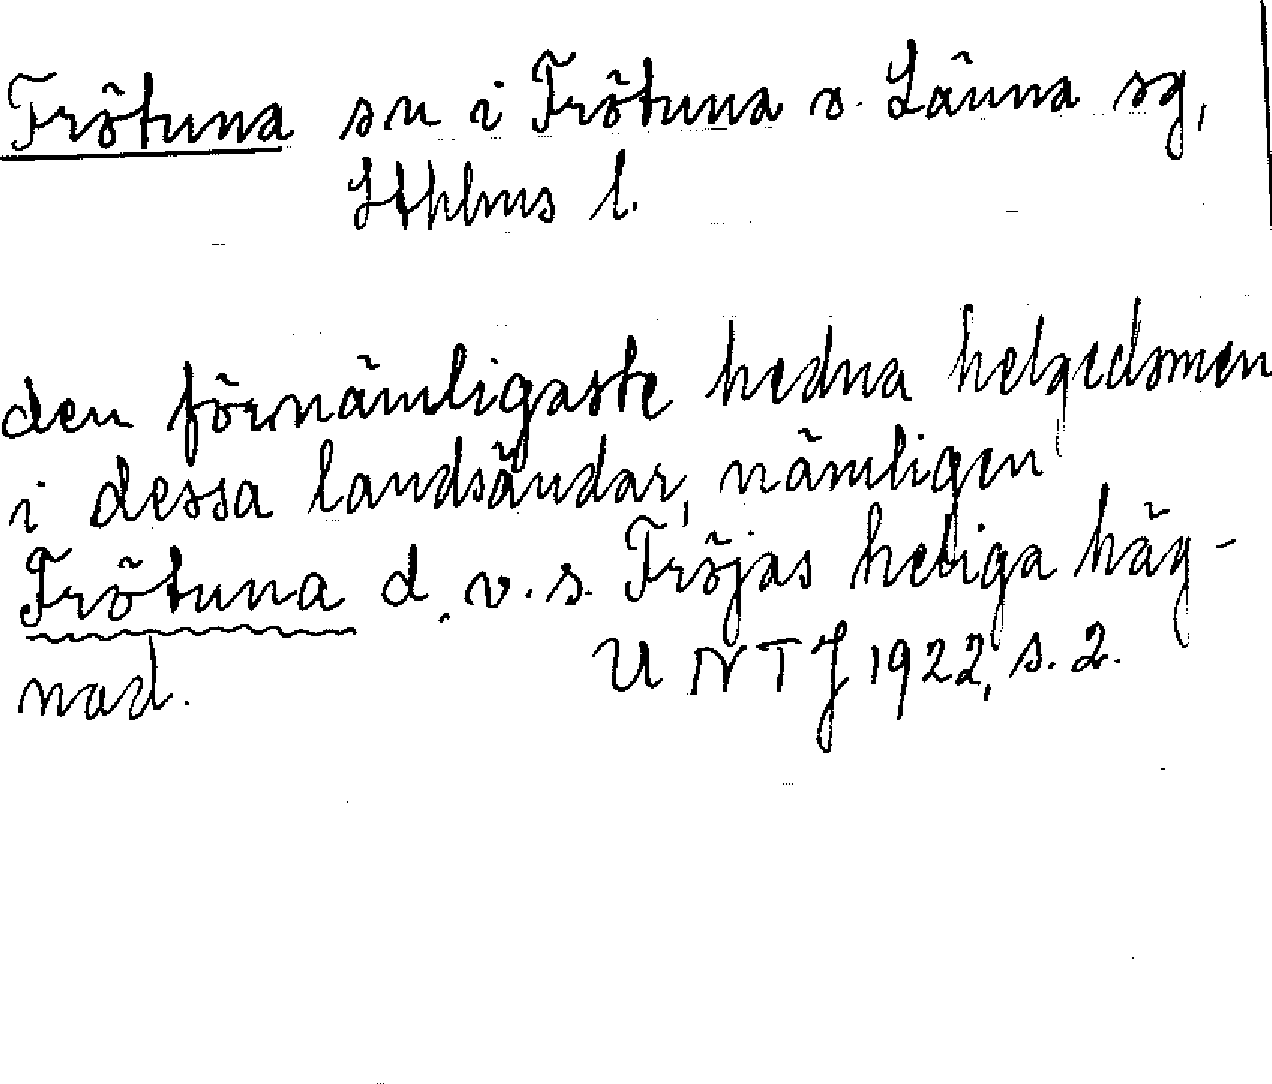 Frötuna sn i Frötuna o. Länna sg,
Sthlms l.
den förnämligaste hedna helgedomen
i dessa landsändar, nämligen
Frötuna d.v.s. Fröjas heliga häg-
nad. UNTJ 1922, s. 2.